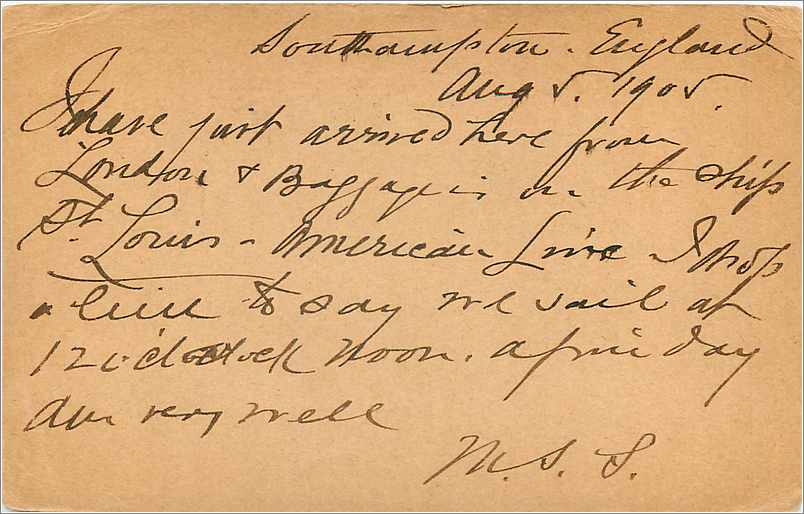 Southampton. England
Aug 5. 1905.
I have just arrived here from
London & Baggage is on the ship
St. Louis - American Line - I drop
a line to say we sail at
12 o'clock noon. a fine day
am very well
M. S. S.